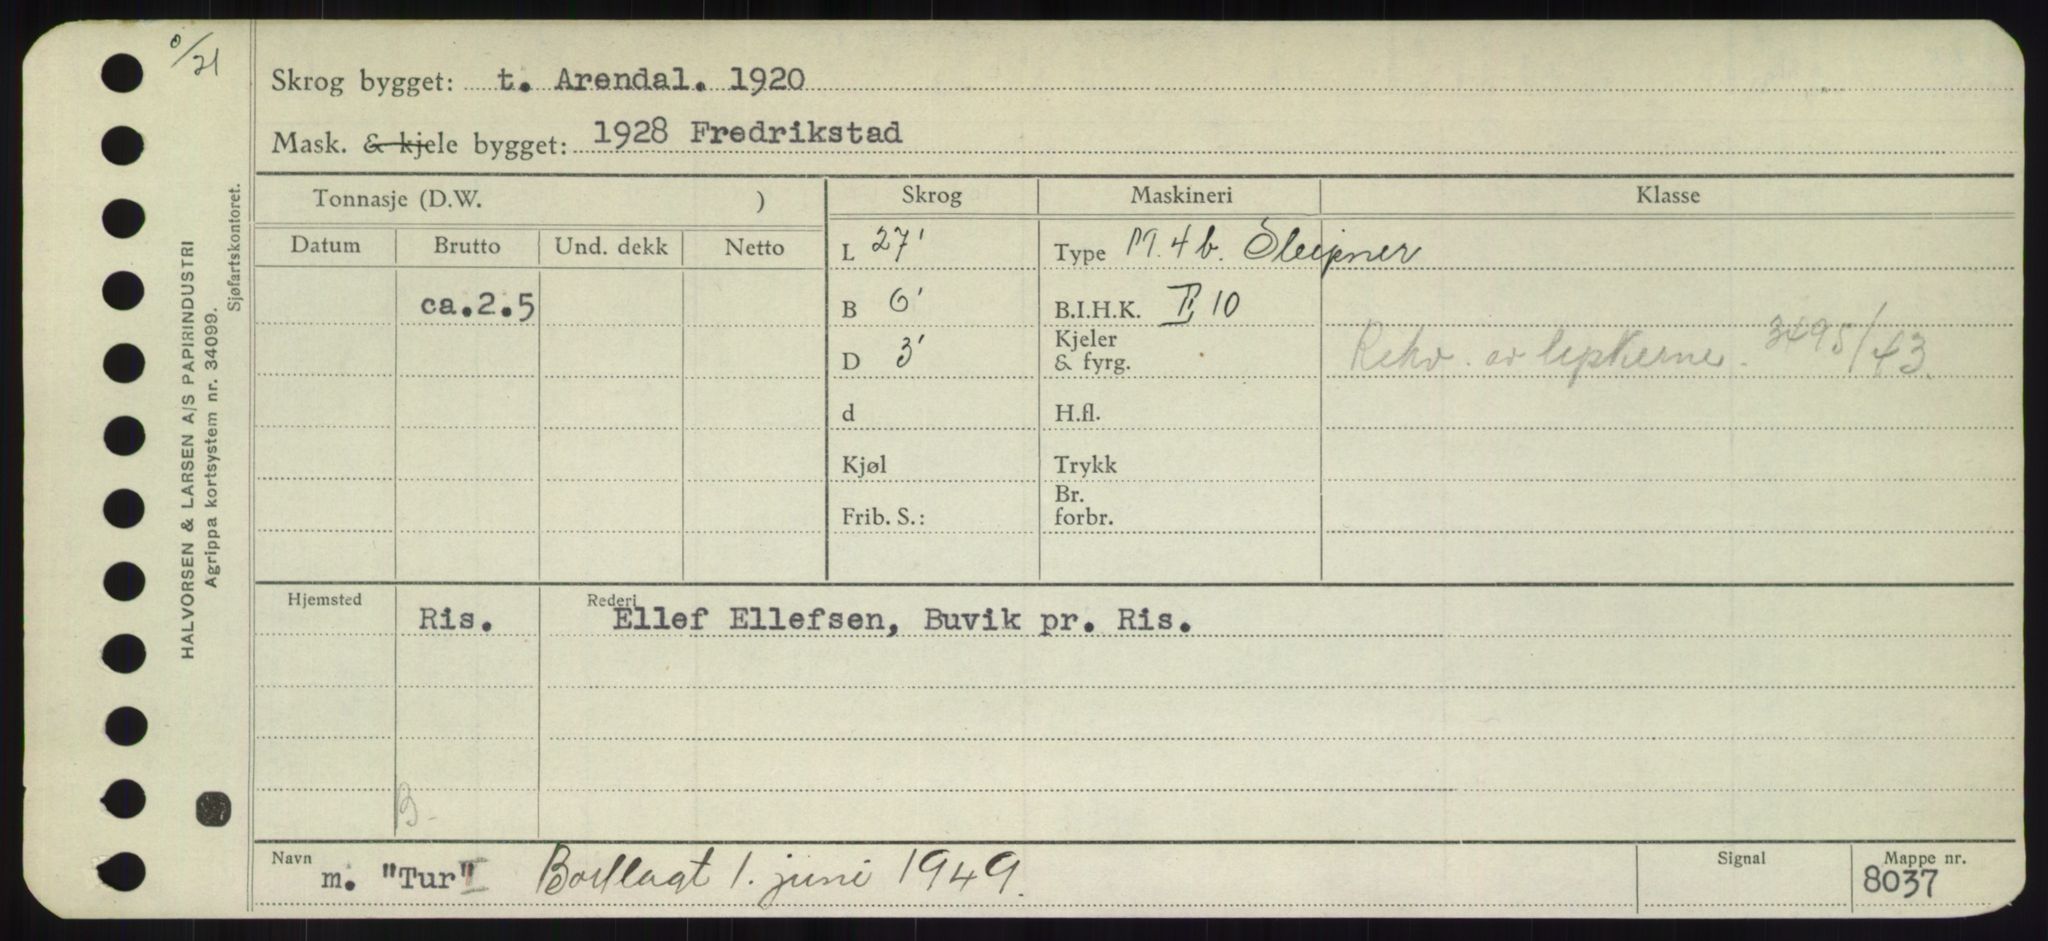 0/21
Skrog bygget: t. Arendal. 1920
Mask. & kjele bygget: 1928 Fredrikstad
HALVORSEN & LARSEN A/S PAPIRINDUSTRI
Agrippa kortsystem nr. 34099.
Sjøfartskontoret.
Tonnasje (D.W. ) Skrog Maskineri Klasse
Datum Brutto Und. dekk Netto
L 27' Type M. 4 b. Sleipner
ca.2.5 B 6' B.I.H.K. II, 10
D 3' Kjeler & fyrg. Rekv. av 3495/43
d H.fl.
Kjøl Trykk
Frib. S.: Br. forbr.
Hjemsted Ris. Rederi Ellef Ellefsen, Buvik pr. Ris.
B.
Navn m. "Tur" Bortlagt 1. juni 1949. Signal Mappe nr. 8037